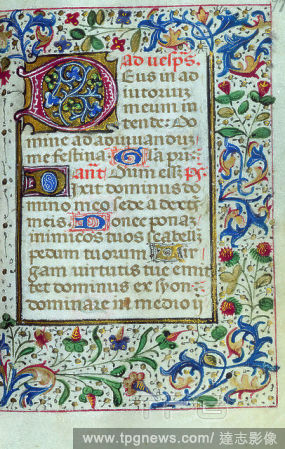 ad vesps.
Deus in ad
iutoriuz
meum in
tende: Do
mine ad adiuuanduz
me festina. Gla pri.
ant. Dum esset ps
Dixit dominus do
mino meo sede a dext
meis Donec ponaz
inimicos tuos scabellz
pedum tuorum Vir
gam virtutis tue emit
tet dominus ex syon
dominare in medio i
www.tpgnews.com/ 達志影像